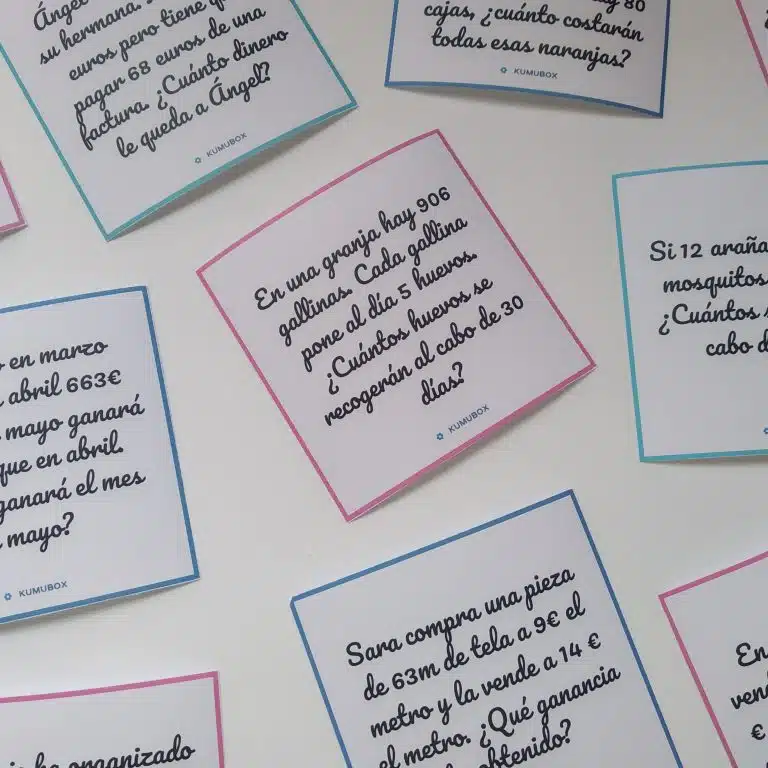 Ángel
su hermana.
euros pero tiene
pagar 68 euros de una
factura. ¿Cuánto dinero
le queda a Ángel?
KUMUBOX
80
cajas, ¿cuánto costarán
todas esas naranjas?
KUMUBOX
En una granja hay 906
gallinas. Cada gallina
pone al día 5 huevos.
¿Cuántos huevos se
recogerán al cabo de 30
días?
KUMUBOX
Si 12 araña
mosquitos
¿Cuántos
cabo d
en marzo
abril 663€
mayo ganará
que en abril.
ganará el mes
mayo?
KUMUBOX
Sara compra una pieza
de 63m de tela a 9€ el
metro y la vende a 14 €
el metro. ¿Qué ganancia
obtenido?
En
ven
€
ha organizado